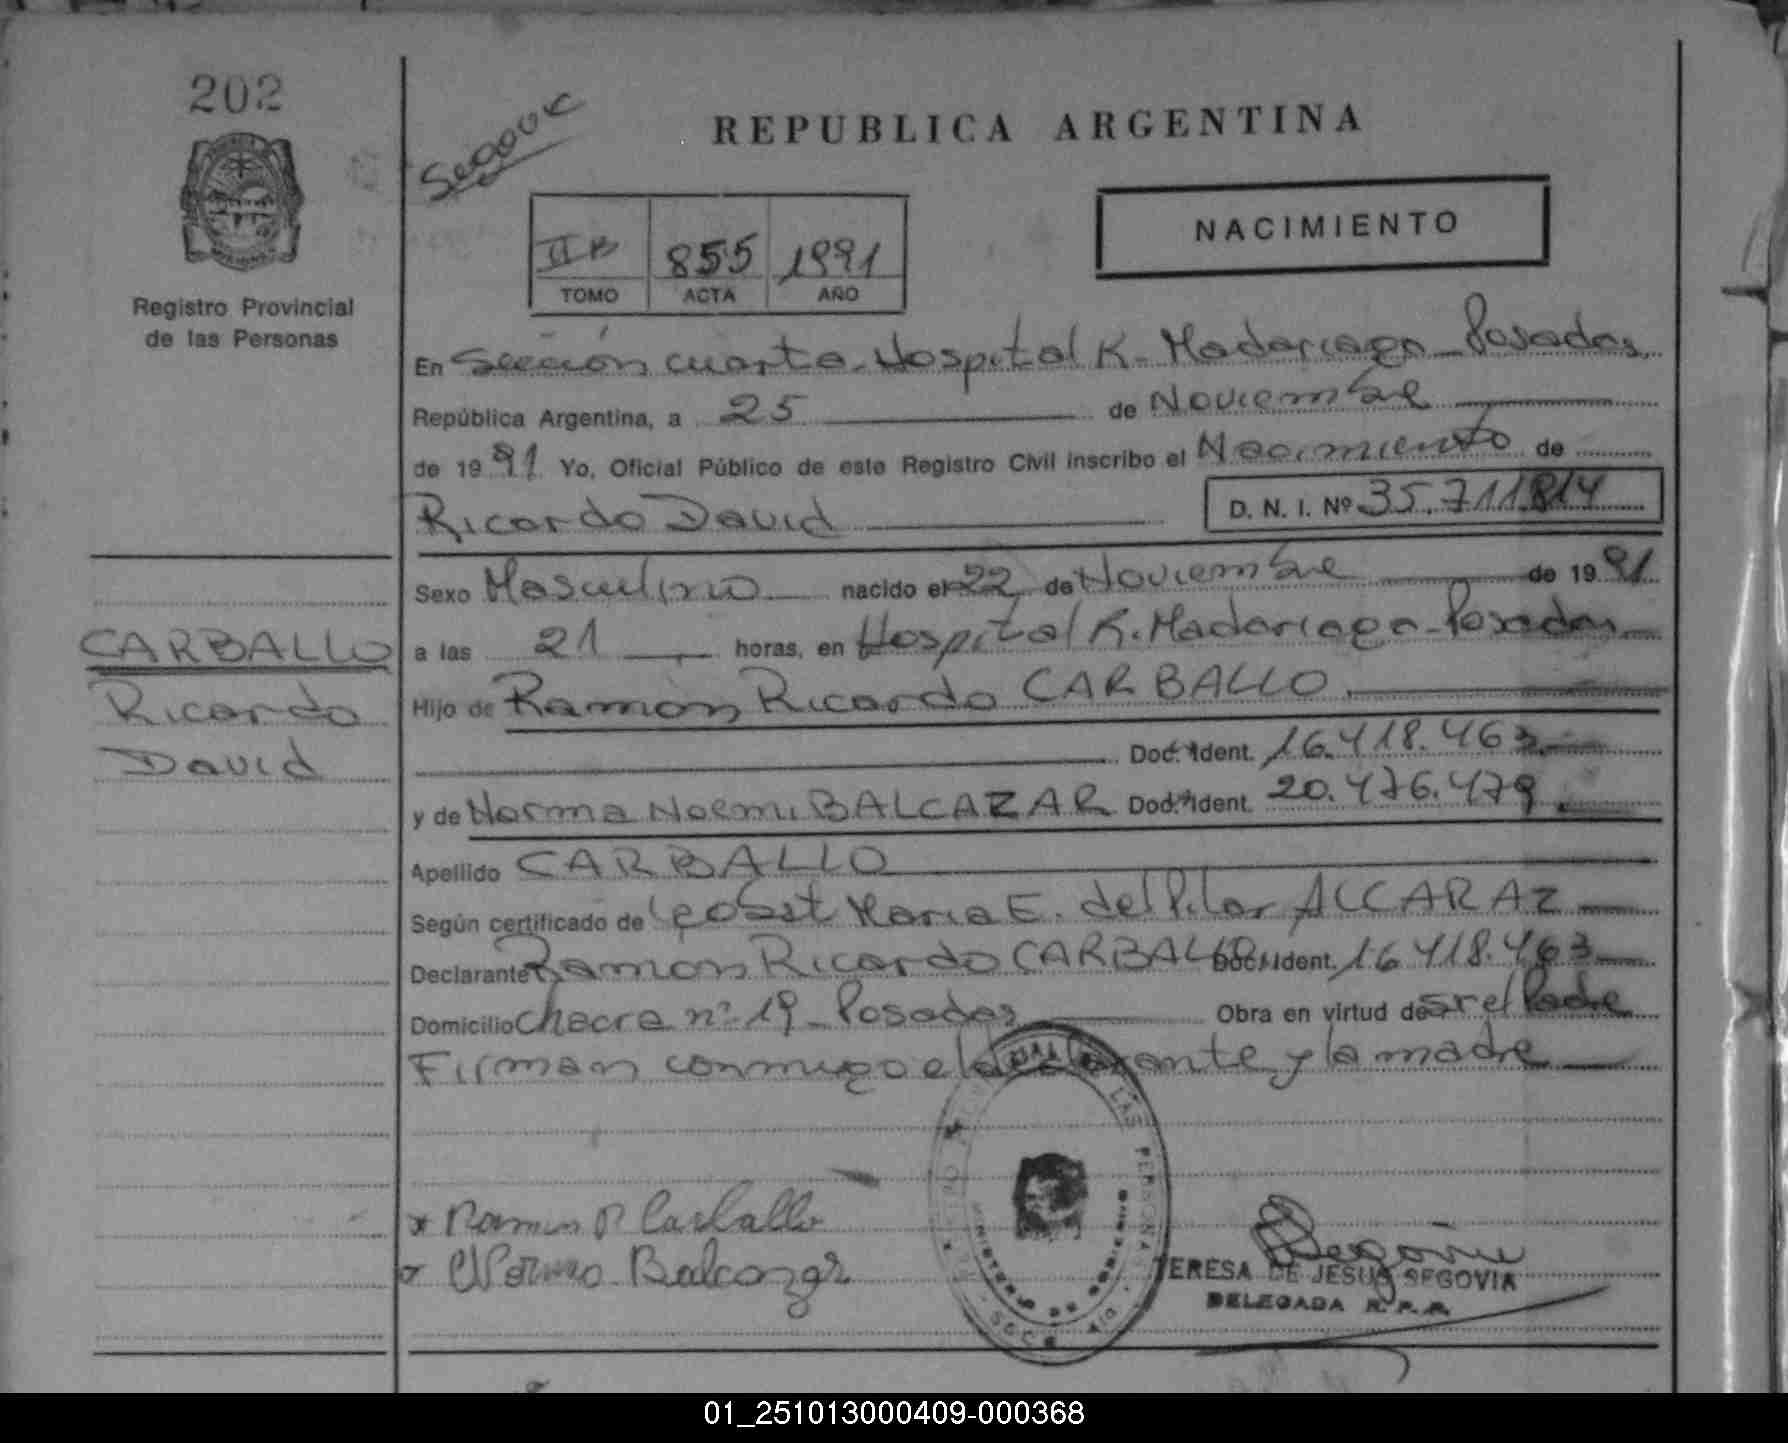 202
Registro Provincial
de las Personas
CARBALLO
Ricardo
David
REPUBLICA ARGENTINA
NACIMIENTO
II B 855 1991
TOMO ACTA AÑO
En Sección cuarta - Hospital R. Madariaga - Posadas
República Argentina, a 25 de Noviembre
de 1991 Yo, Oficial Público de este Registro Civil inscribo el Nacimiento de
Ricardo David D. N. I. Nº 35.711.814
Sexo Masculino nacido el 22 de Noviembre de 1991
a las 21 horas, en Hospital R. Madariaga - Posadas
Hijo de Ramón Ricardo CARBALLO
Doc. Ident. 16.418.463
y de Norma Noemi BALCAZAR Doc. Ident. 20.476.479
Apellido CARBALLO
Según certificado de Maria E. del Pilar ALCARAZ
Declarante Ramon Ricardo CARBALLO Doc. Ident. 16.418.463
Domicilio Chacra nº 19 - Posadas Obra en virtud de ser el Padre
Firman conmigo el declarante y la madre
Ramon R Carballo
Norma Balcazar
Segovia
TERESA DE JESUS SEGOVIA
DELEGADA R. P. P.
01_251013000409-000368